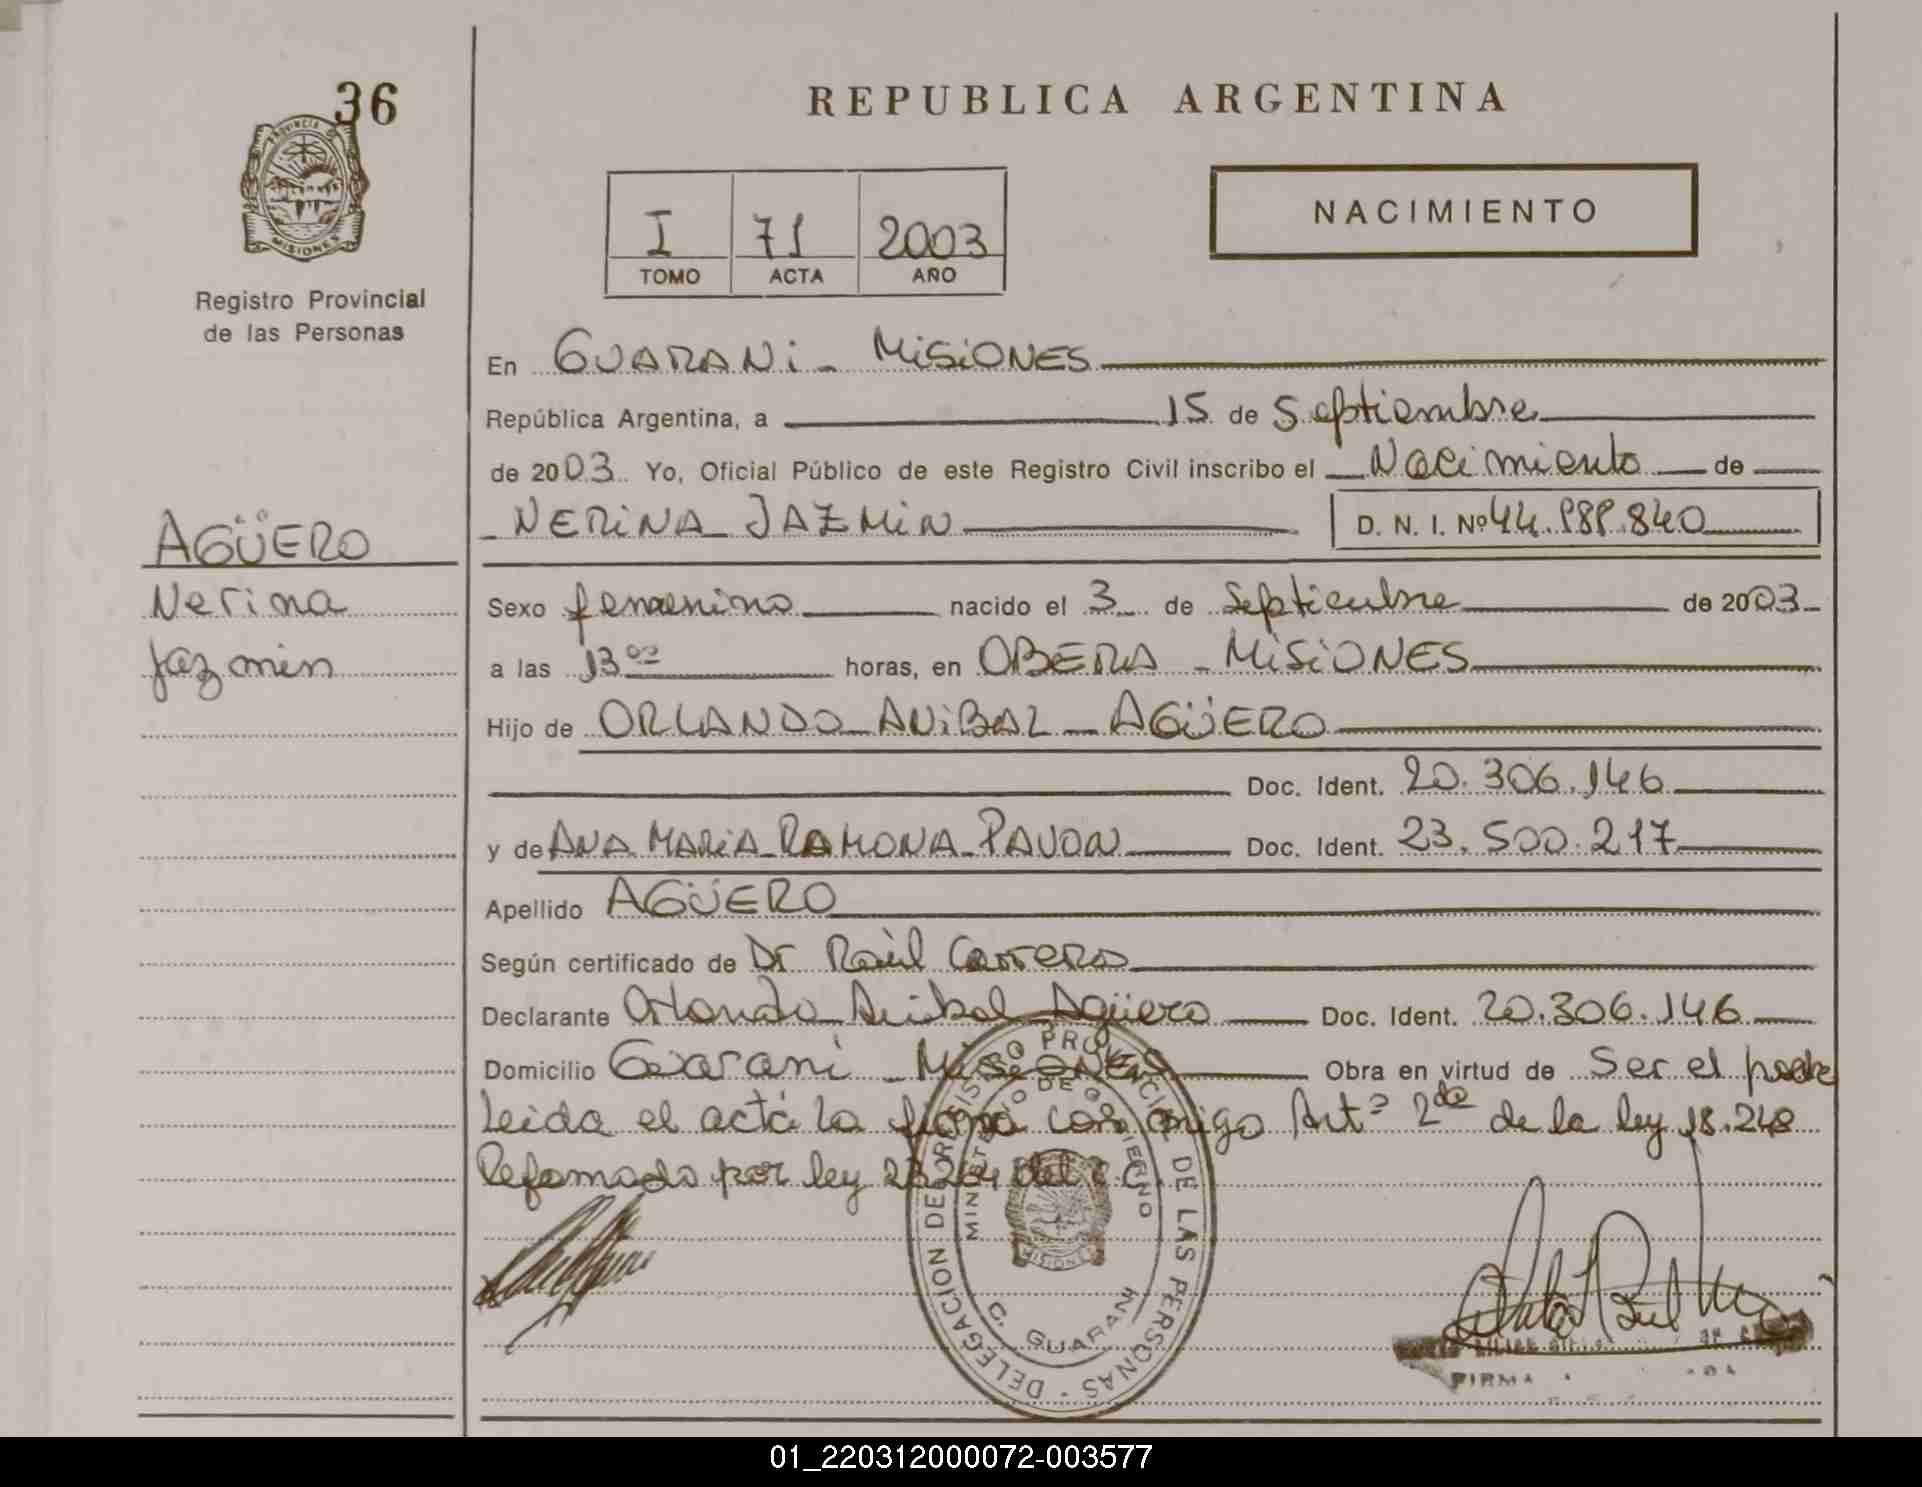 36
PROVINCIA DE
MISIONES
Registro Provincial
de las Personas
AGÜERO
Nerina
Jazmin
REPUBLICA ARGENTINA
I 71 2003
TOMO ACTA AÑO
NACIMIENTO
En GUARANi - MiSiONES
República Argentina, a 15 de Septiembre
de 2003 Yo, Oficial Público de este Registro Civil inscribo el Nacimiento de
NERiNA JAZMiN D. N. I. Nº 44.989.840
Sexo femenino nacido el 3 de Septiembre de 2003
a las 13 00 horas, en OBERA - MiSiONES
Hijo de ORLANDO ANiBAL AGÜERO
Doc. Ident. 20.306.146
y de ANA MARiA RAMONA PAVON Doc. Ident. 23.500.217
Apellido AGÜERO
Según certificado de Dr Raúl Carrero
Declarante Orlando Anibal Agüero Doc. Ident. 20.306.146
Domicilio Guarani - MiSiONES Obra en virtud de Ser el padre
Leida el acta la firma conmigo Artº 2do de la ley 18.248
Refomado por ley 23264 del C.C.
DELEGACION DE REGISTRO PROVINCIAL DE LAS PERSONAS
MINISTERIO DE GOBIERNO
MISIONES
C. GUARANI
FIRMA
01_220312000072-003577